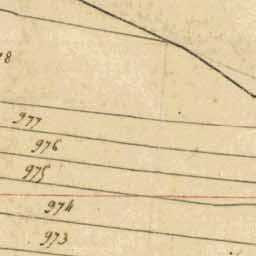 8
977
976
975
974
973